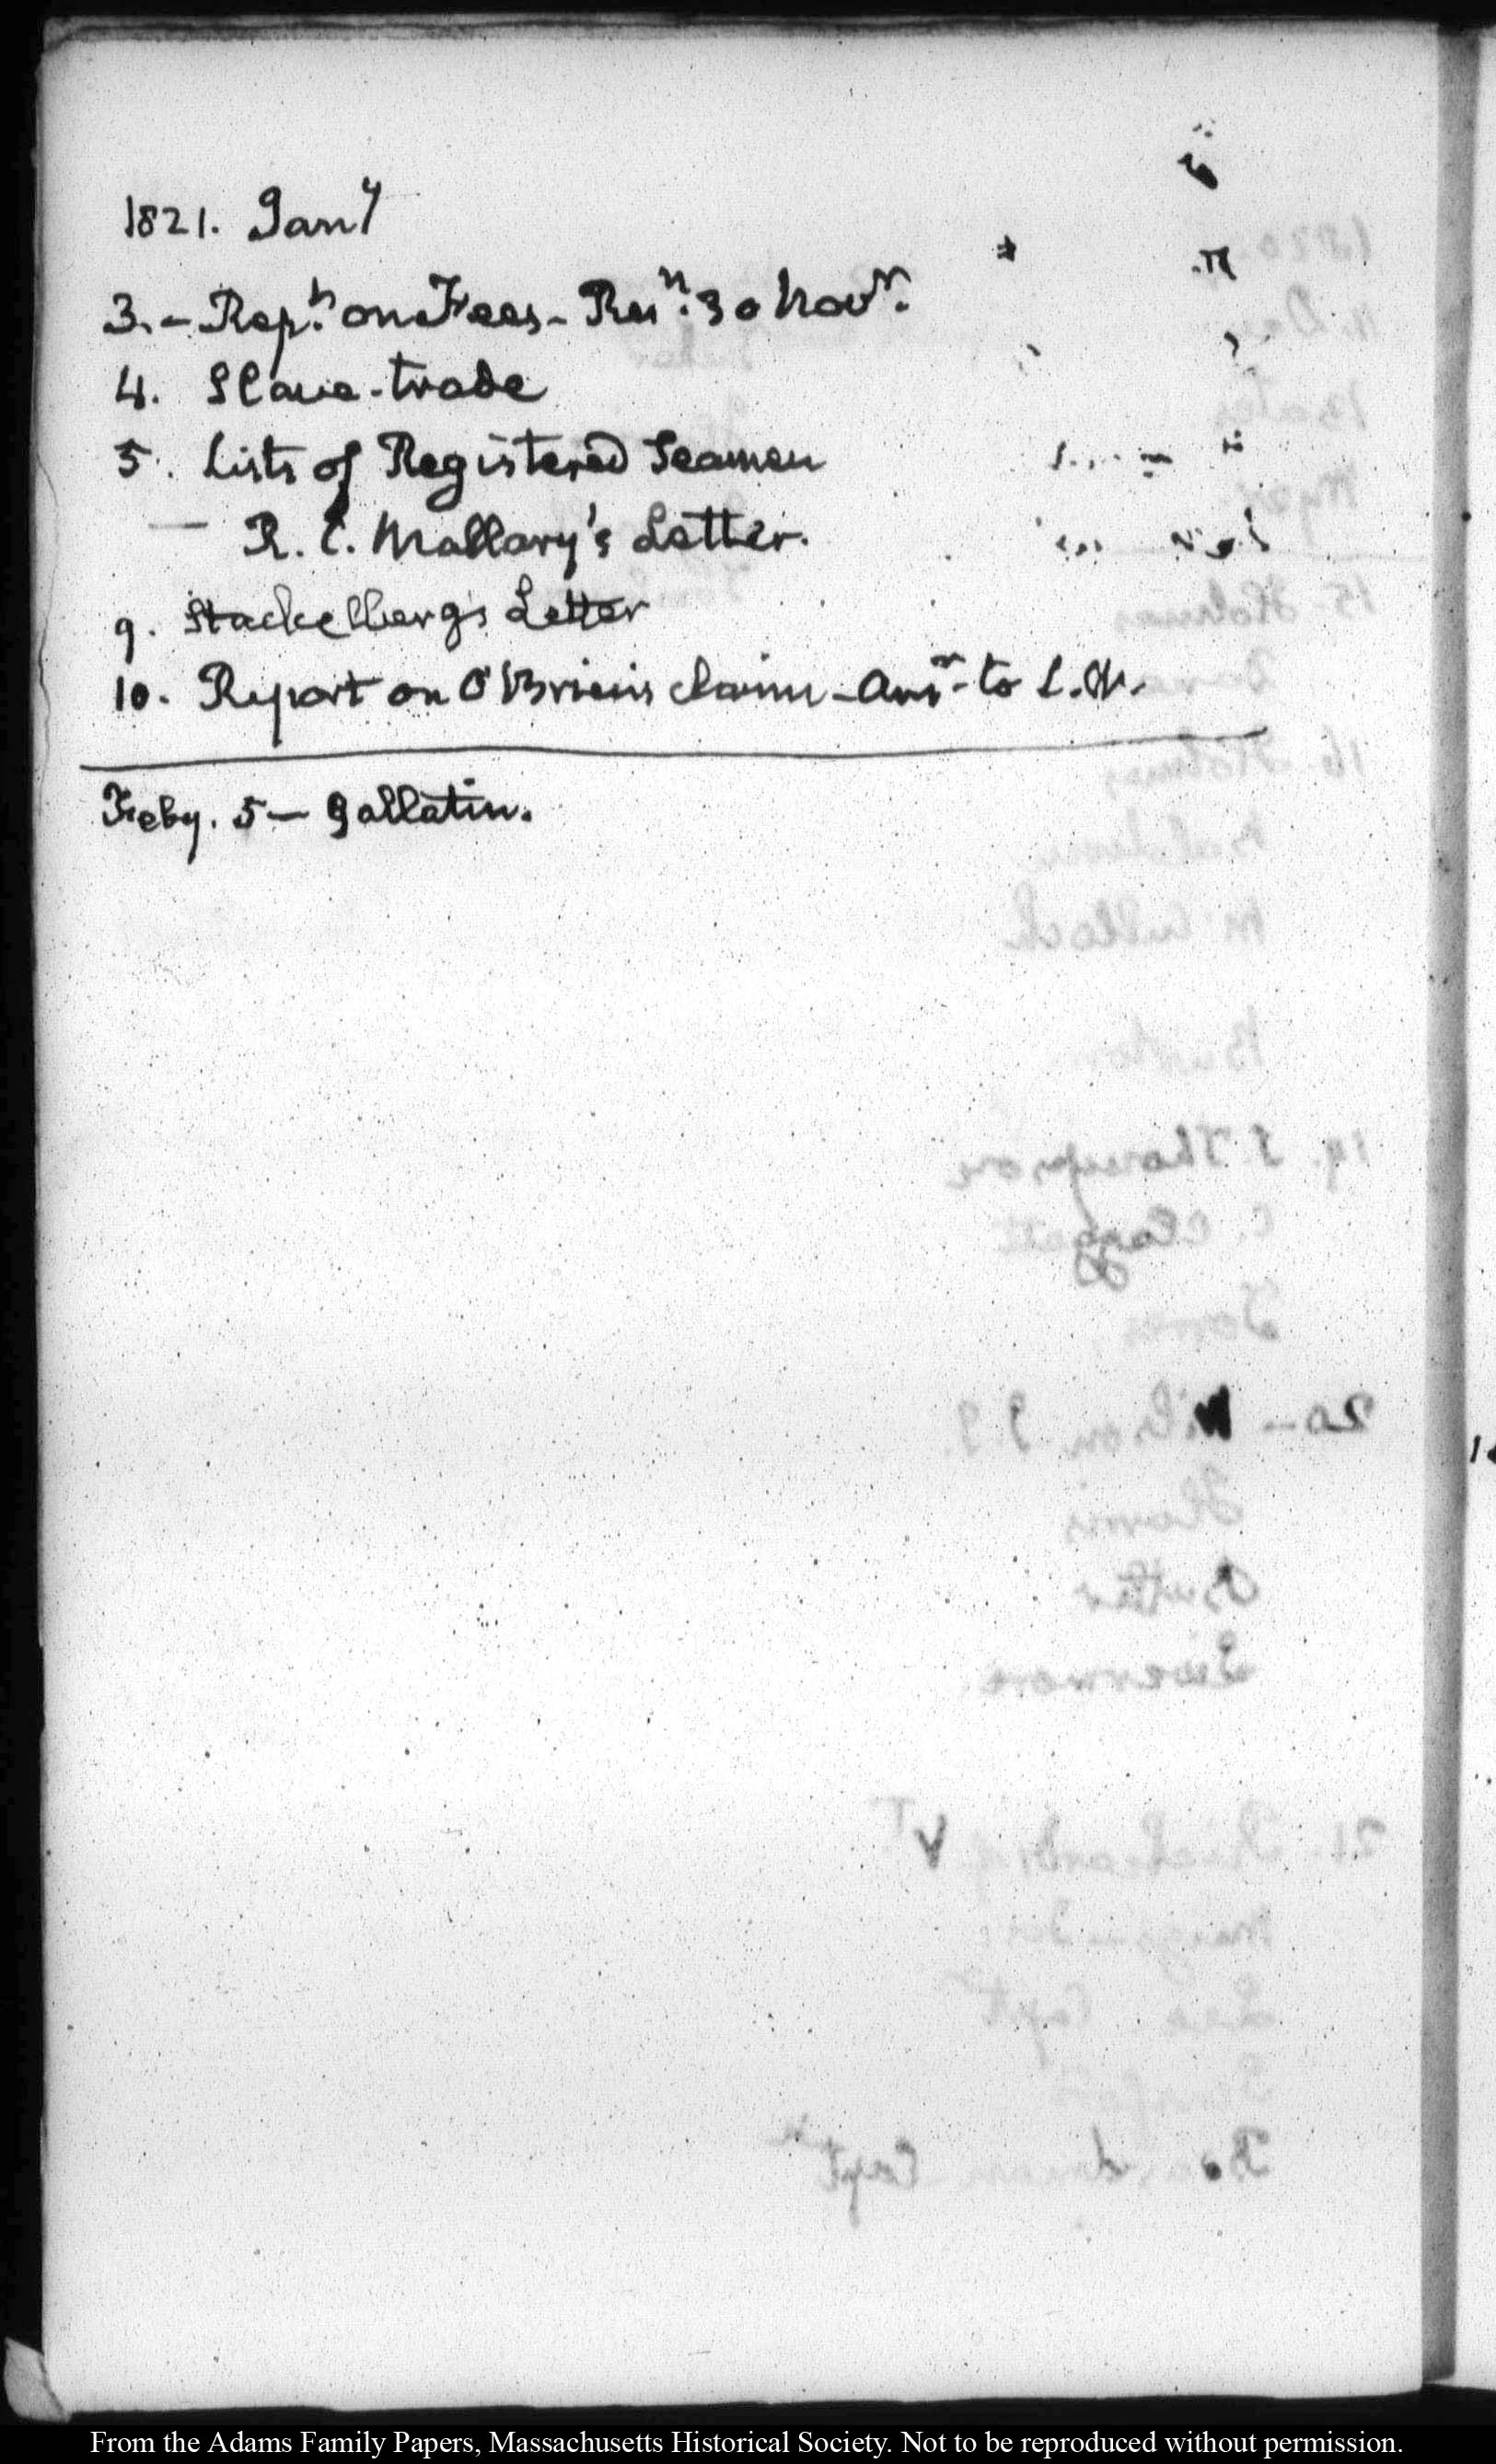 1821. Jany
3.– Rept. on Fees– Resn. 30 Novr.
4. Slave-trade
5. Lists of Registered Seamen
— R. C. Mallary's Letter.
9. Stackelberg's Letter
10. Report on O'Brien's claim – Ansr. to
Feby. 5 — Gallatin.
From the Adams Family Papers, Massachusetts Historical Society. Not to be reproduced without permission.